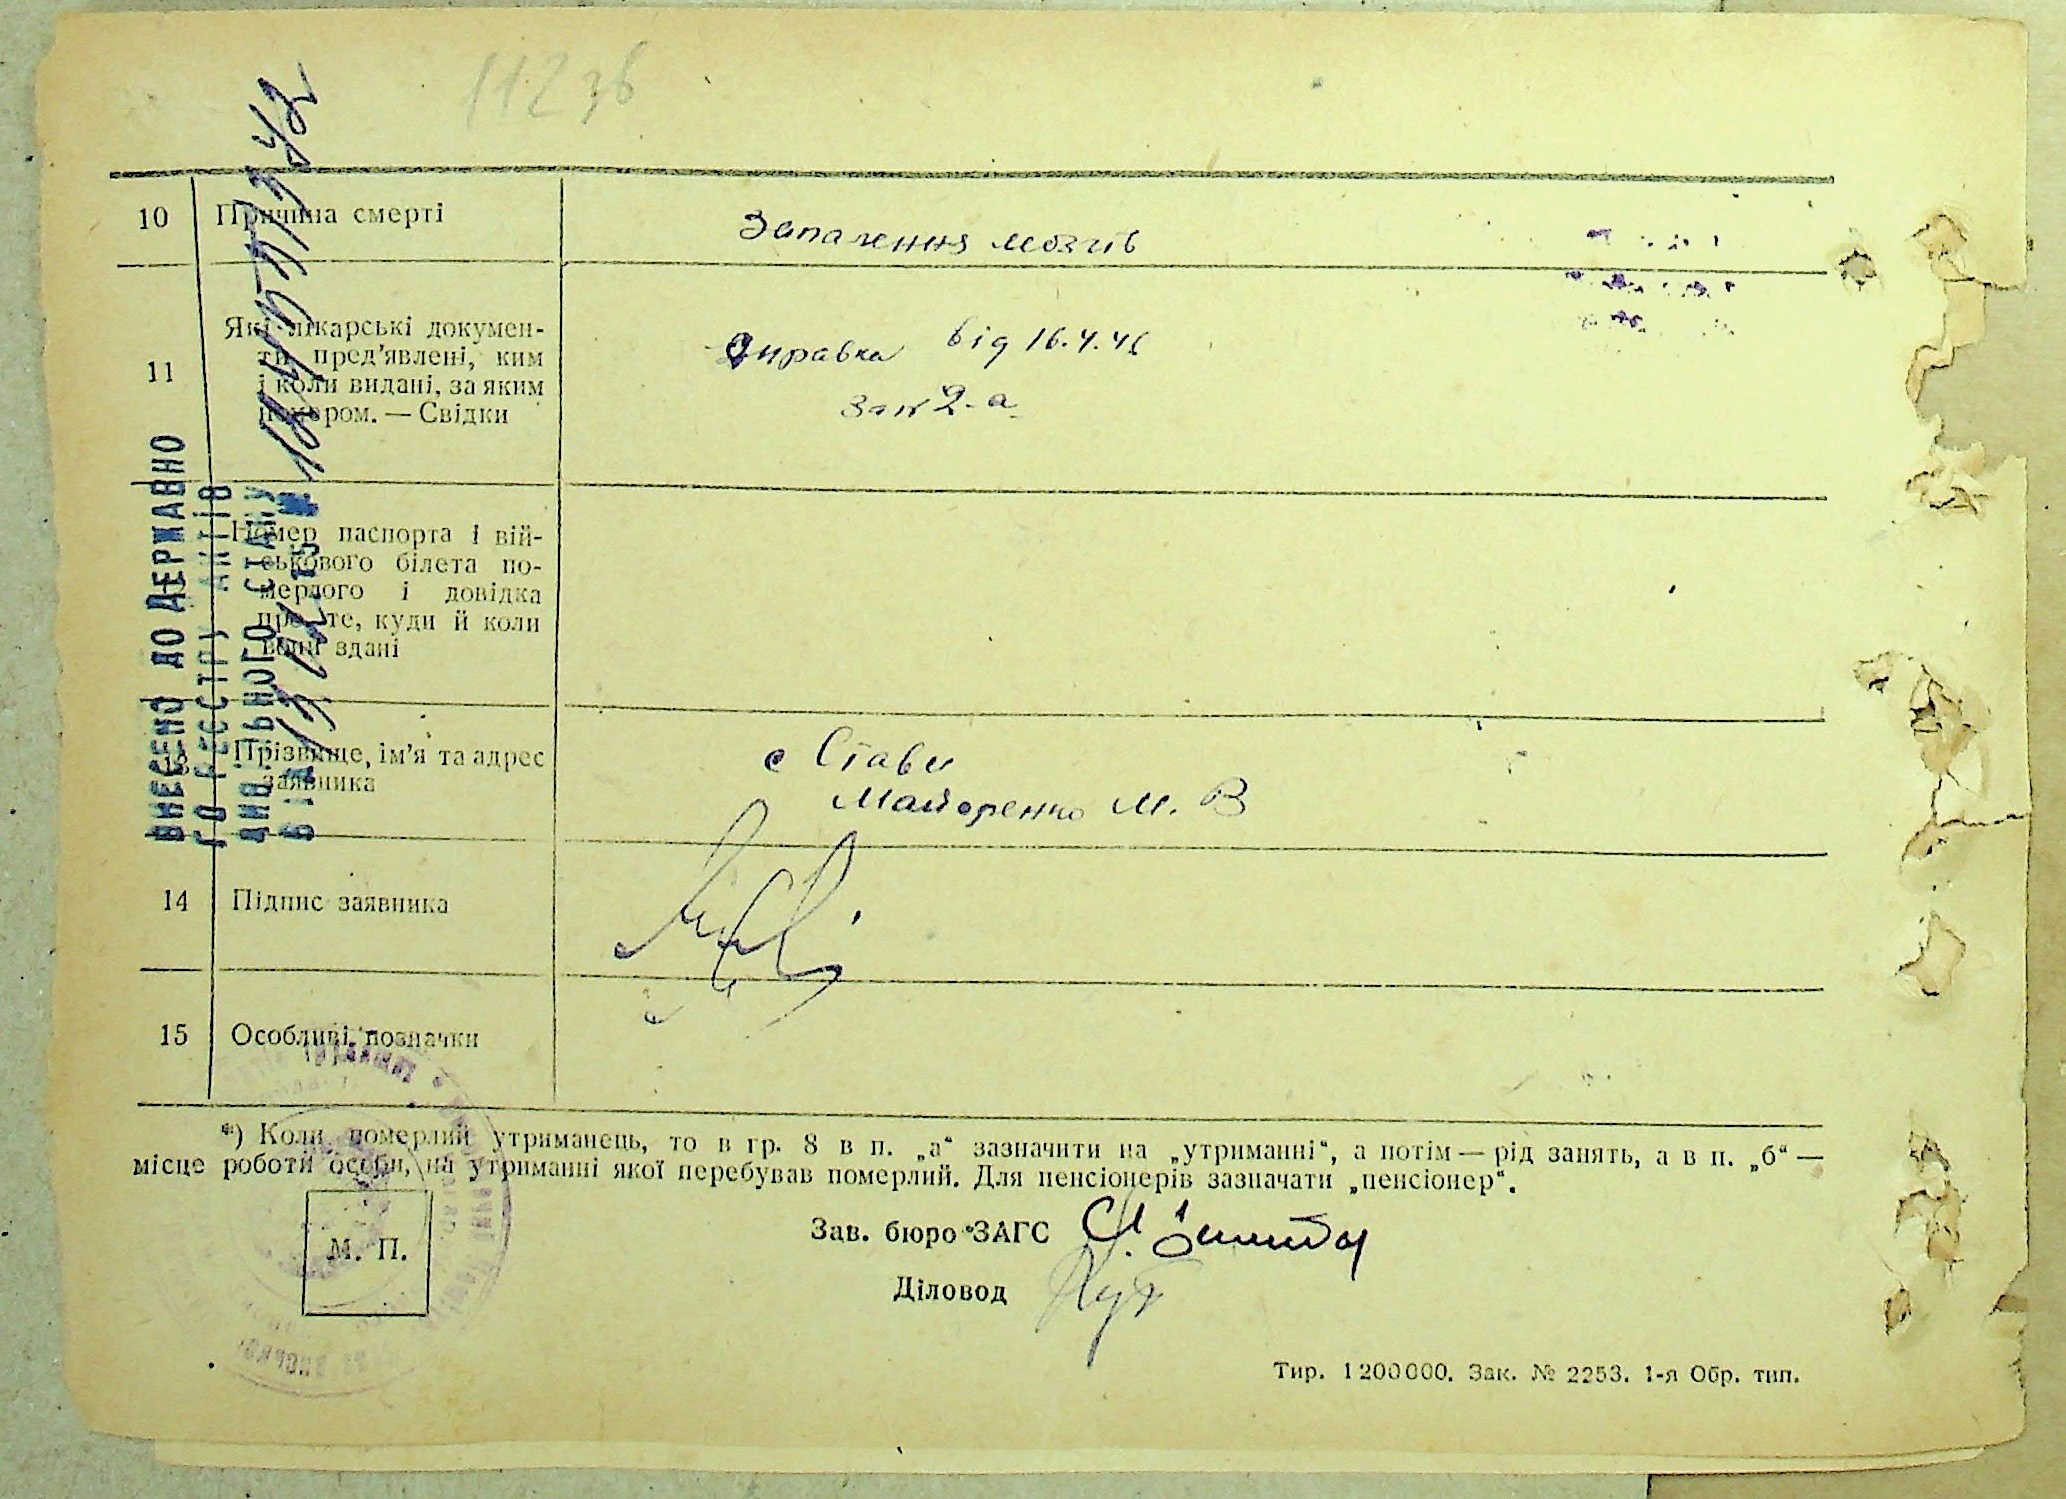 112 зв
10 Причина смерті
Запалення мозгів
11 Які лікарські докумен-
ти пред'явлені, ким
і коли видані, за яким
номером. — Свідки
Справка від 16.4.41
Зак 2-а
Номер паспорта і вій-
ськового білета по-
мерлого і довідка
про те, куди й коли
вони здані
13 Прізвище, ім'я та адрес
заявника
с Стави
Майоренко М. В
14 Підпис заявника
15 Особливі позначки
*) Коли померлий утриманець, то в гр. 8 в п. „а“ зазначити на „утриманні“, а потім — рід занять, а в п. „б“ —
місце роботи особи, на утриманні якої перебував померлий. Для пенсіонерів зазначати „пенсіонер“.
М. П.
Зав. бюро ЗАГС
Діловод
Тир. 1200000. Зак. № 2253. 1-я Обр. тип.
ВНЕСЕНО ДО ДЕРЖАВНО
ГО РЕЄСТРУ АКТІВ
ЦИВІЛЬНОГО СТАНУ
ВІД